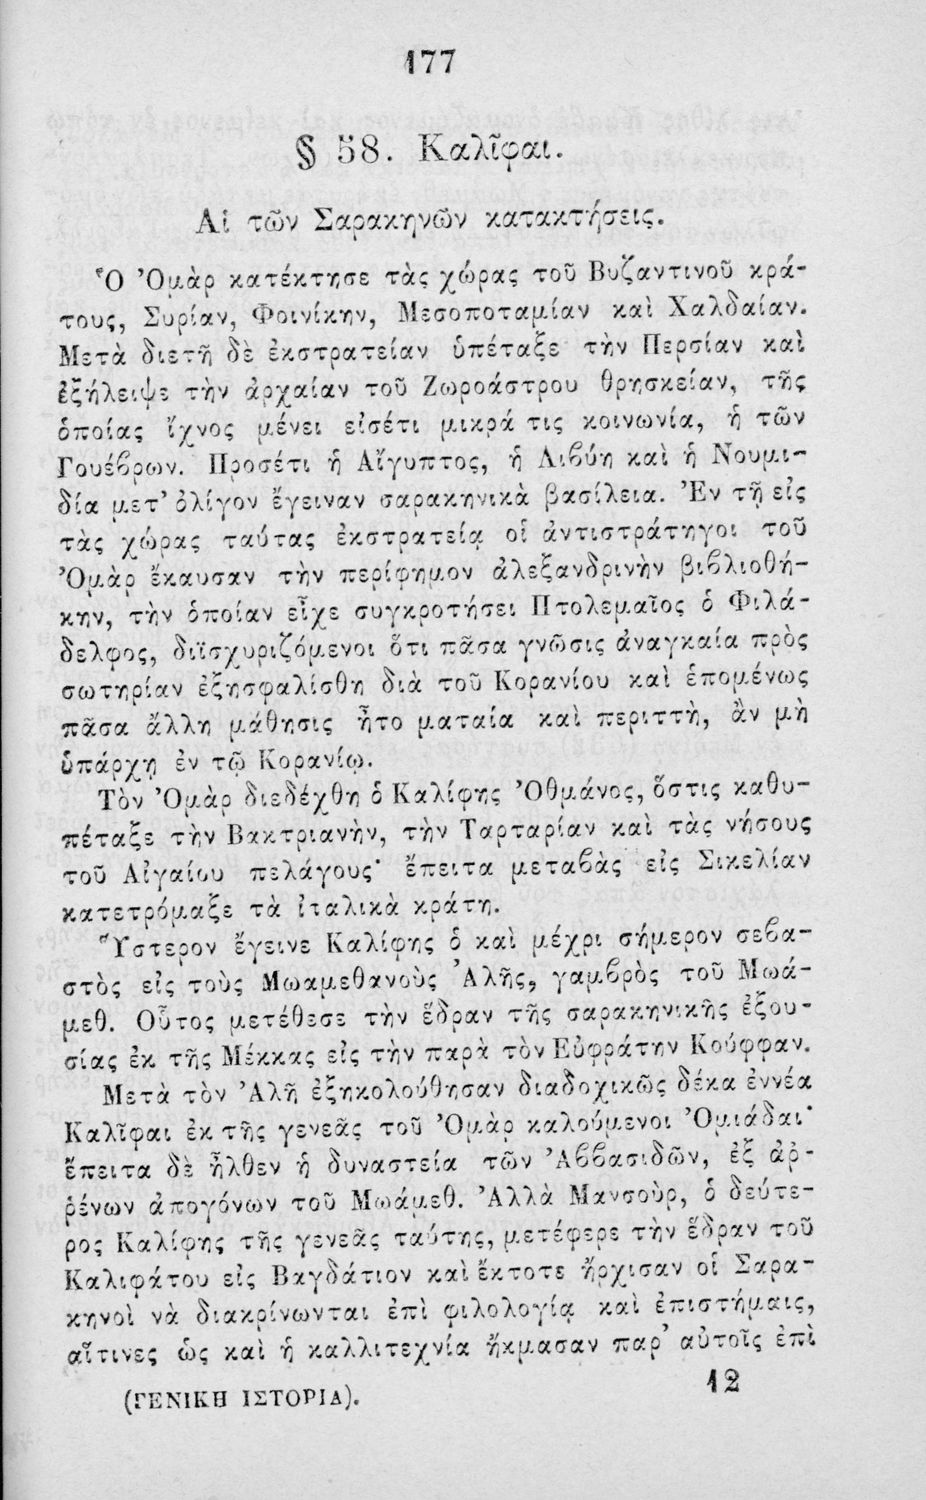 177
§ 58. Καλῖφαι.
Αἱ τῶν Σαρακηνῶν κατακτήσεις.
Ὁ Ὀμὰρ κατέκτησε τὰς χώρας τοῦ Βυζαντινοῦ κρά-
τους, Συρίαν, Φοινίκην, Μεσοποταμίαν καὶ Χαλδαίαν.
Μετὰ διετῆ δὲ ἐκστρατείαν ὑπέταξε τὴν Περσίαν καὶ
ἐξήλειψε τὴν ἀρχαίαν τοῦ Ζωροάστρου θρησκείαν, τῆς
ὁποίας ἴχνος μένει εἰσέτι μικρά τις κοινωνία, ἡ τῶν
Γουέβρων. Προσέτι ἡ Αἴγυπτος, ἡ Λιβύη καὶ ἡ Νουμι-
δία μετ' ὀλίγον ἔγειναν σαρακηνικὰ βασίλεια. Ἐν τῇ εἰς
τὰς χώρας ταύτας ἐκστρατείᾳ οἱ ἀντιστράτηγοι τοῦ
Ὀμὰρ ἔκαυσαν τὴν περίφημον ἀλεξανδρινὴν βιβλιοθή-
κην, τὴν ὁποίαν εἶχε συγκροτήσει Πτολεμαῖος ὁ Φιλά-
δελφος, διϊσχυριζόμενοι ὅτι πᾶσα γνῶσις ἀναγκαία πρὸς
σωτηρίαν ἐξησφαλίσθη διὰ τοῦ Κορανίου καὶ ἑπομένως
πᾶσα ἄλλη μάθησις ἦτο ματαία καὶ περιττὴ, ἂν μὴ
ὑπάρχῃ ἐν τῷ Κορανίῳ.
Τὸν Ὀμὰρ διεδέχθη ὁ Καλίφης Ὀθμάνος, ὅστις καθυ-
πέταξε τὴν Βακτριανὴν, τὴν Ταρταρίαν καὶ τὰς νήσους
τοῦ Αἰγαίου πελάγους· ἔπειτα μεταβὰς εἰς Σικελίαν
κατετρόμαξε τὰ ἰταλικὰ κράτη.
Ὕστερον ἔγεινε Καλίφης ὁ καὶ μέχρι σήμερον σεβα-
στὸς εἰς τοὺς Μωαμεθανοὺς Ἀλῆς, γαμβρὸς τοῦ Μωά-
μεθ. Οὗτος μετέθεσε τὴν ἕδραν τῆς σαρακηνικῆς ἐξου-
σίας ἐκ τῆς Μέκκας εἰς τὴν παρὰ τὸν Εὐφράτην Κούφφαν.
Μετὰ τὸν Ἀλῆ ἐξηκολούθησαν διαδοχικῶς δέκα ἐννέα
Καλῖφαι ἐκ τῆς γενεᾶς τοῦ Ὀμὰρ καλούμενοι Ὀμιάδαι·
ἔπειτα δὲ ἦλθεν ἡ δυναστεία τῶν Ἀββασιδῶν, ἐξ ἀρ-
ῥένων ἀπογόνων τοῦ Μωάμεθ. Ἀλλὰ Μανσοὺρ, ὁ δεύτε-
ρος Καλίφης τῆς γενεᾶς ταύτης, μετέφερε τὴν ἕδραν τοῦ
Καλιφάτου εἰς Βαγδάτιον καὶ ἔκτοτε ἤρχισαν οἱ Σαρα-
κηνοὶ νὰ διακρίνωνται ἐπὶ φιλολογίᾳ καὶ ἐπιστήμαις,
αἵτινες ὡς καὶ ἡ καλλιτεχνία ἤκμασαν παρ' αὐτοῖς ἐπὶ
(ΓΕΝΙΚΗ ΙΣΤΟΡΙΑ).
12